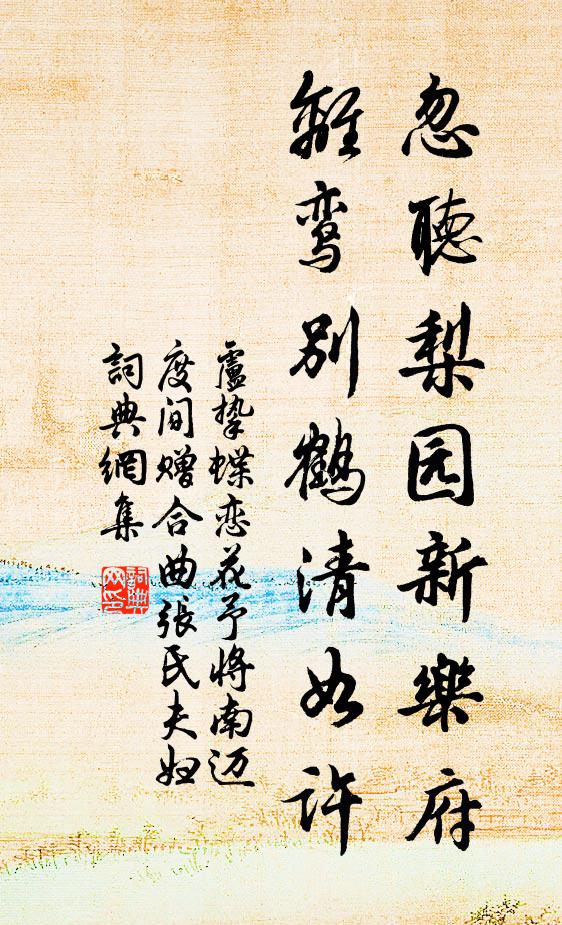 忽聽梨园新樂府
離鸾别鶴清如许
盧摯蝶恋花予将南迈
度间赠合曲張氏夫妇
詞典網集
詞典网印